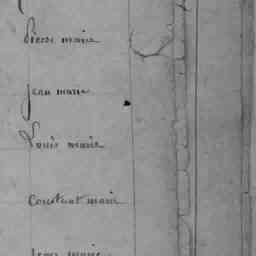 Pierre marie
Jean marie
Louis marie
Constant marie
marie